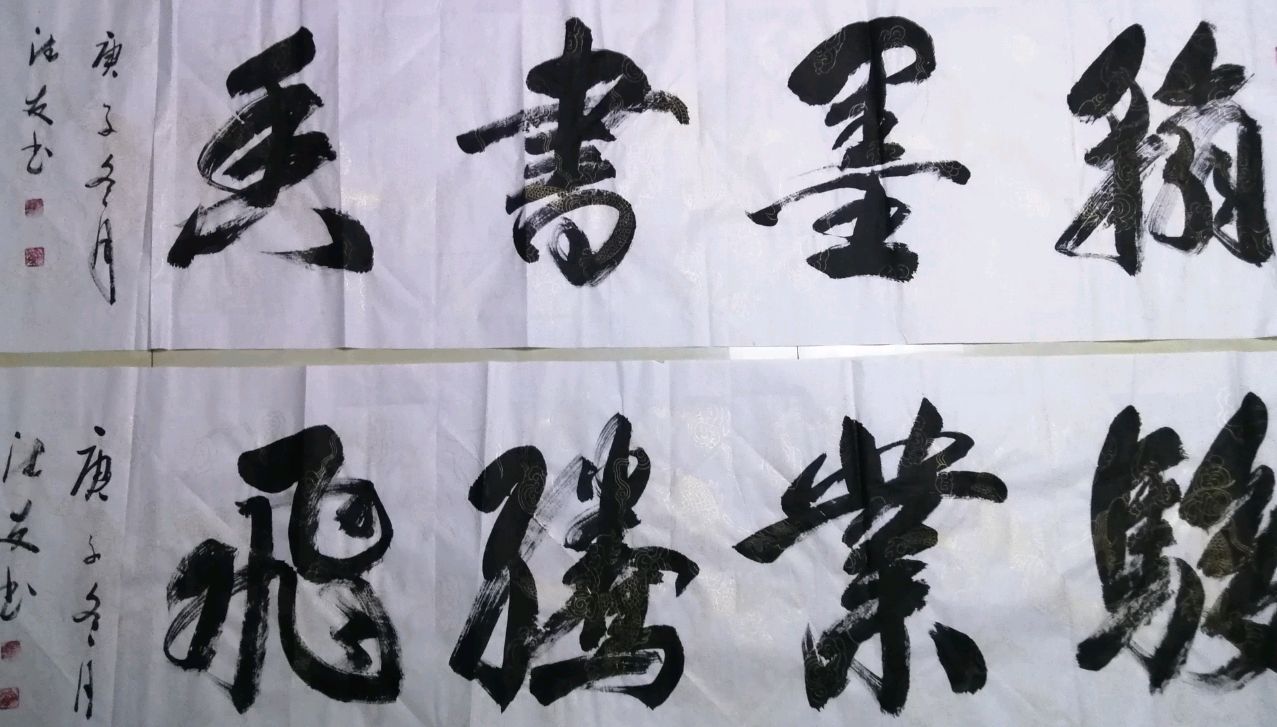 翰墨書香
庚子冬月
友书
駿業騰飛
庚子冬月
友书